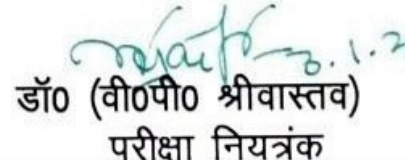 3.1.2
डॉ0 (वी0पी0 श्रीवास्तव)
परीक्षा नियत्रंक